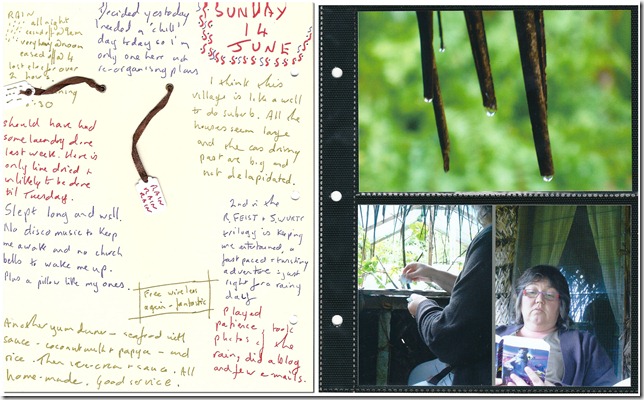 RAIN
all night
very heavy @ noon
eased off @ 4
last clear over
2 hours.
Decided yesterday
I needed a 'chill'
day today so I'm
only one here not
re-organising plans
SUNDAY
14
JUNE
should have had
some laundry done
last week. Here is
only line dried &
unlikely to be done
til Tuesday.
Slept long and well.
No disco music to keep
me awake and no church
bells to wake me up.
Plus a pillow like my ones.
RAIN
RAIN
RAIN
I think this
village is like a well
to do suburb. All the
houses seem large
and the cars driving
past are big and
not delapidated.
2nd in the
R. FEIST & S. WURTZ
trilogy is keeping
me entertained, a
fast paced & twisting
adventure is just
right for a rainy
day
Free wireless
again - fantastic
played
patience, took
photos of the
rain, did a blog
and few e-mails.
Another yum dinner - seafood with
sauce - coconut milk & papya - and
rice. Then ice-cream & sauce. All
home-made. Good service.